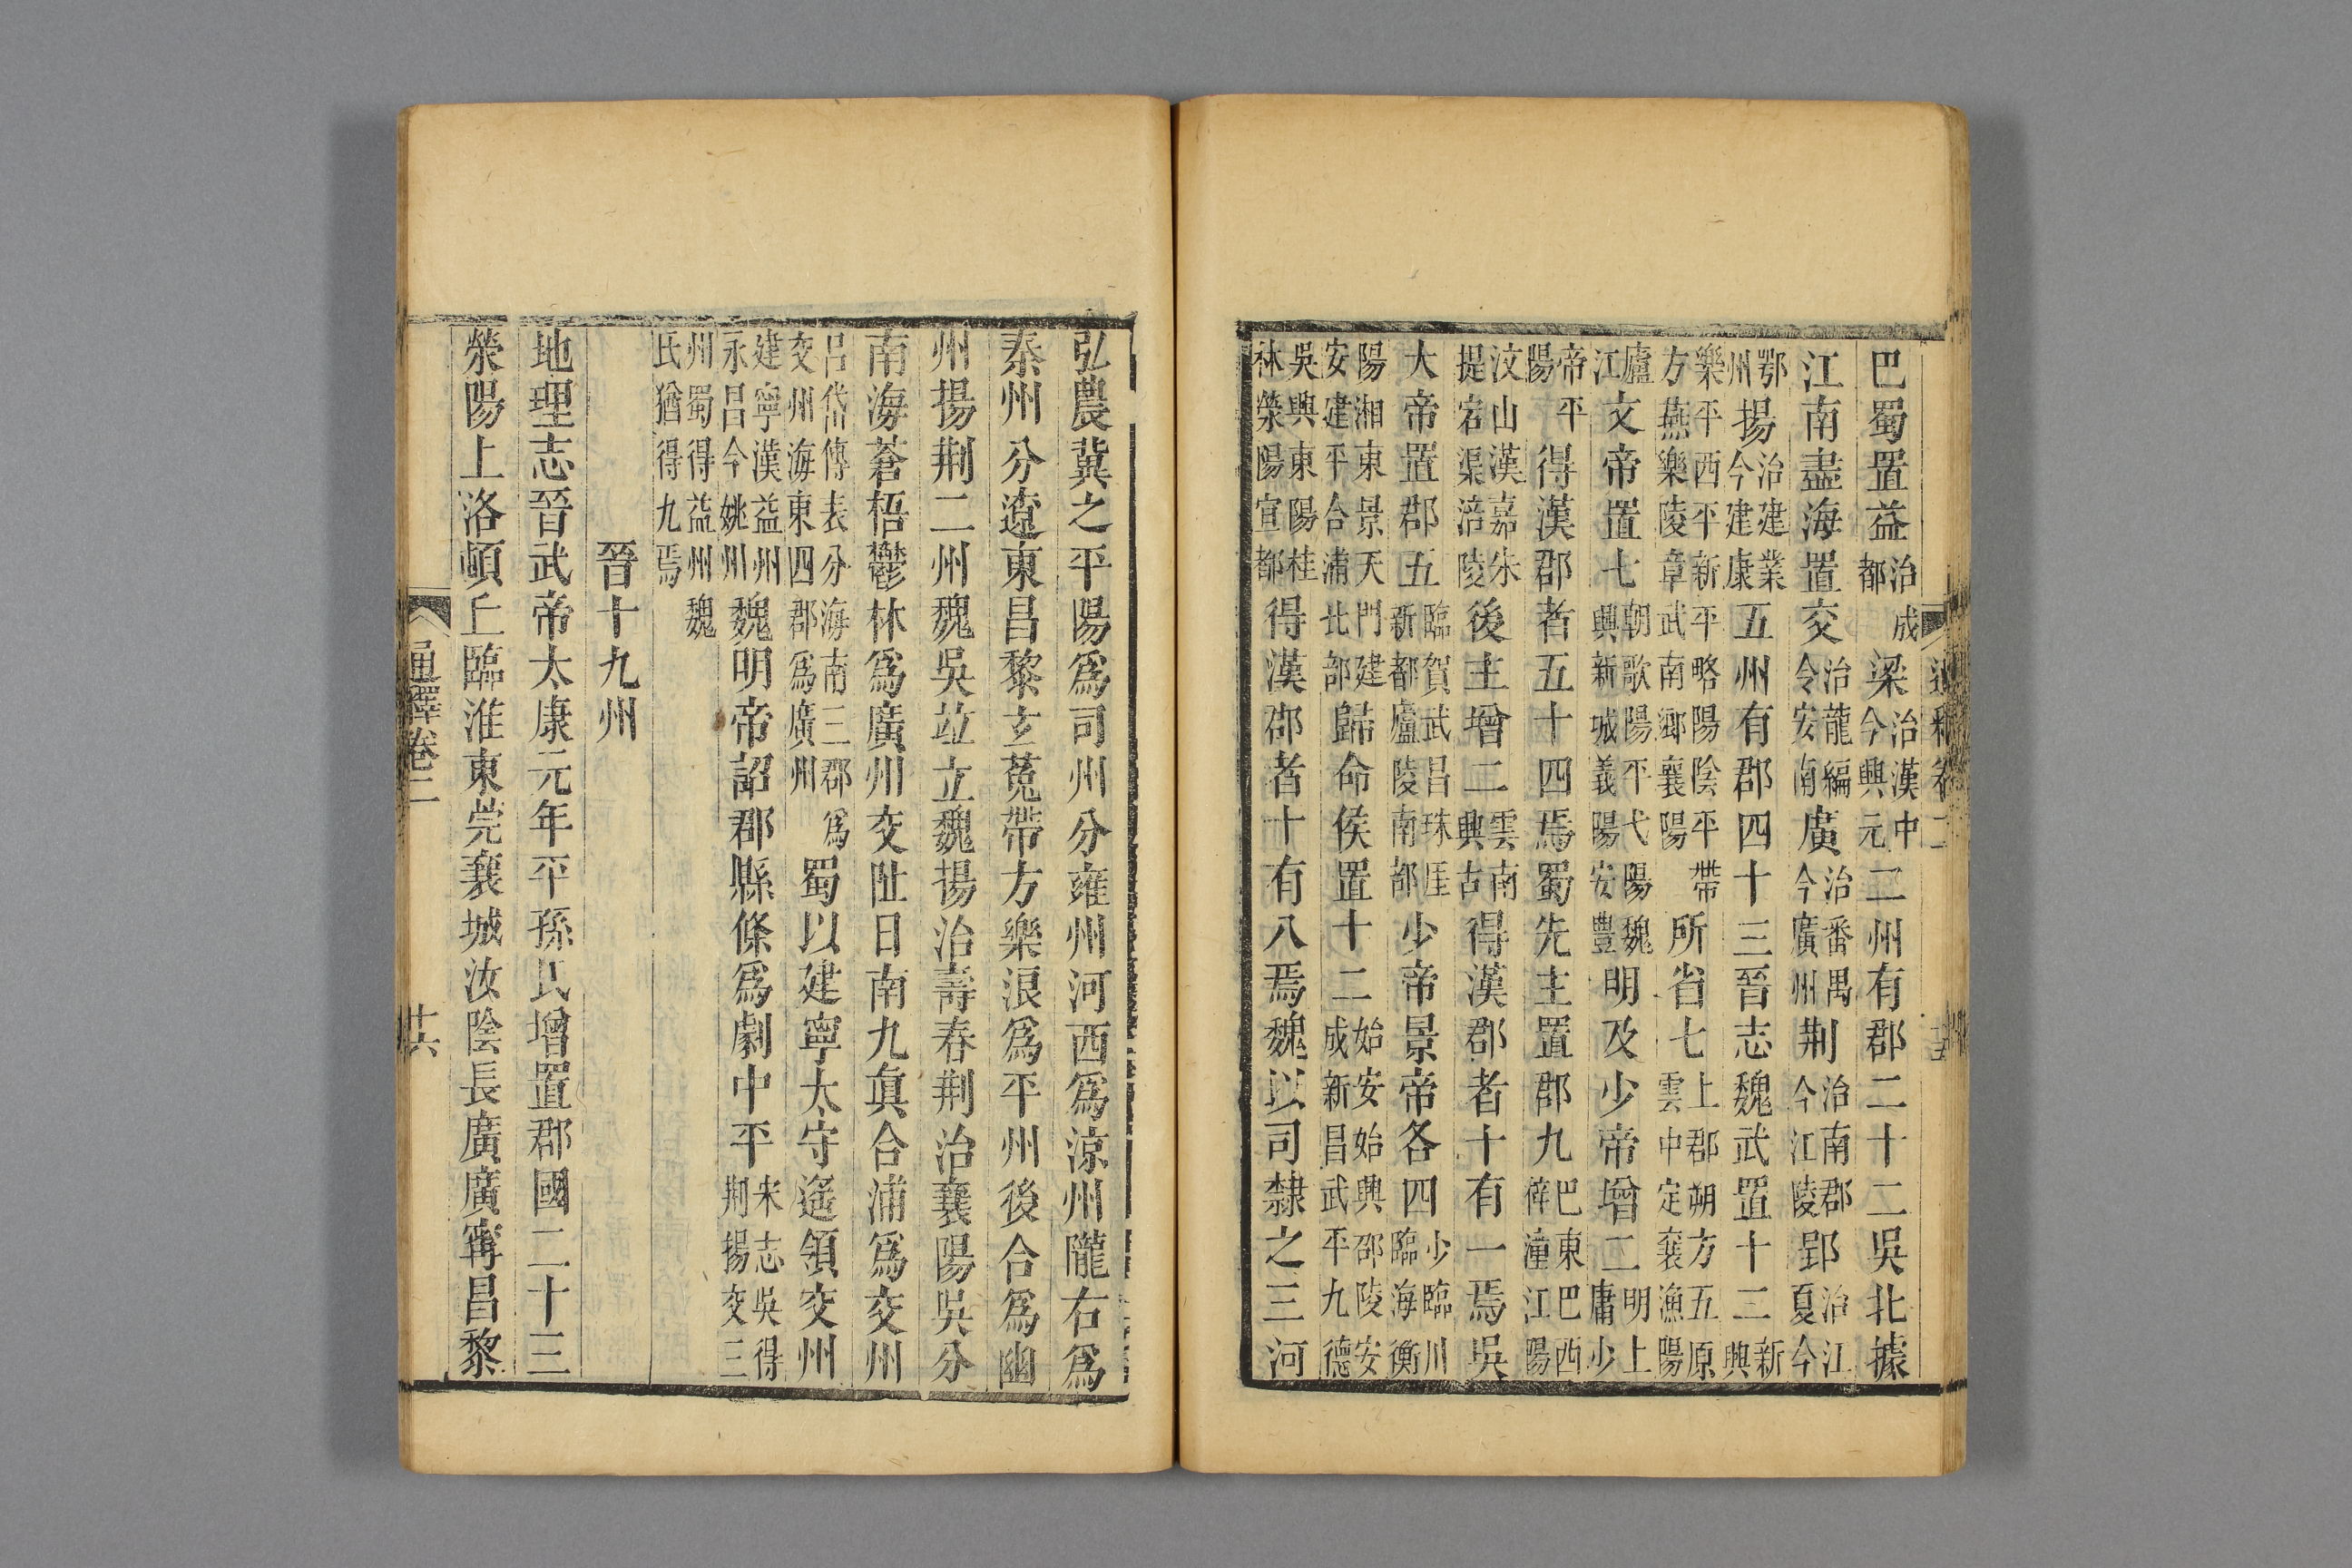 巴蜀置益治成都梁治漢中今興元二州有郡二十二吳北據
江南盡海置交治龍編今安南廣治番禺今廣州荆治南郡今江陵郢治江夏今
鄂州揚治建業今建康五州有郡四十三晉志魏武置十二新興
樂平西平新平略陽陰平帶方燕樂陵章武南鄉襄陽所省七上郡朔方五原雲中定襄漁陽
廬江文帝置七朝歌陽平弋陽魏興新城義陽安豐明及少帝增二明上庸少
帝平陽得漢郡者五十四焉蜀先主置郡九巴東巴西梓潼江陽
汶山漢嘉朱提宕渠涪陵後主增二雲南興古得漢郡者十有一焉吳
大帝置郡五臨賀武昌珠厓新都廬陵南部少帝景帝各四少臨川臨海衡
陽湘東景天門建安建平合浦北部歸命侯置十二始安始興邵陵安成新昌武平九德
吳興東陽桂林滎陽宜都得漢郡者十有八焉魏以司隸之三河
弘農冀之平陽爲司州分雍州河西爲涼州隴右爲
秦州分遼東昌黎玄菟帶方樂浪爲平州後合爲幽
州揚荆二州魏吳竝立魏揚治壽春荆治襄陽吳分
南海蒼梧鬱林爲廣州交阯日南九眞合浦爲交州
呂岱傳表分海南三郡爲交州海東四郡爲廣州蜀以建寧太守遙領交州
建寧漢益州永昌今姚州魏明帝詔郡縣條爲劇中平宋志吳得荆揚交三
州蜀得益州魏氏猶得九焉
晉十九州
地理志晉武帝太康元年平孫氏增置郡國二十三
滎陽上洛頓丘臨淮東莞襄城汝陰長廣廣寧昌黎
通釋卷二
十六